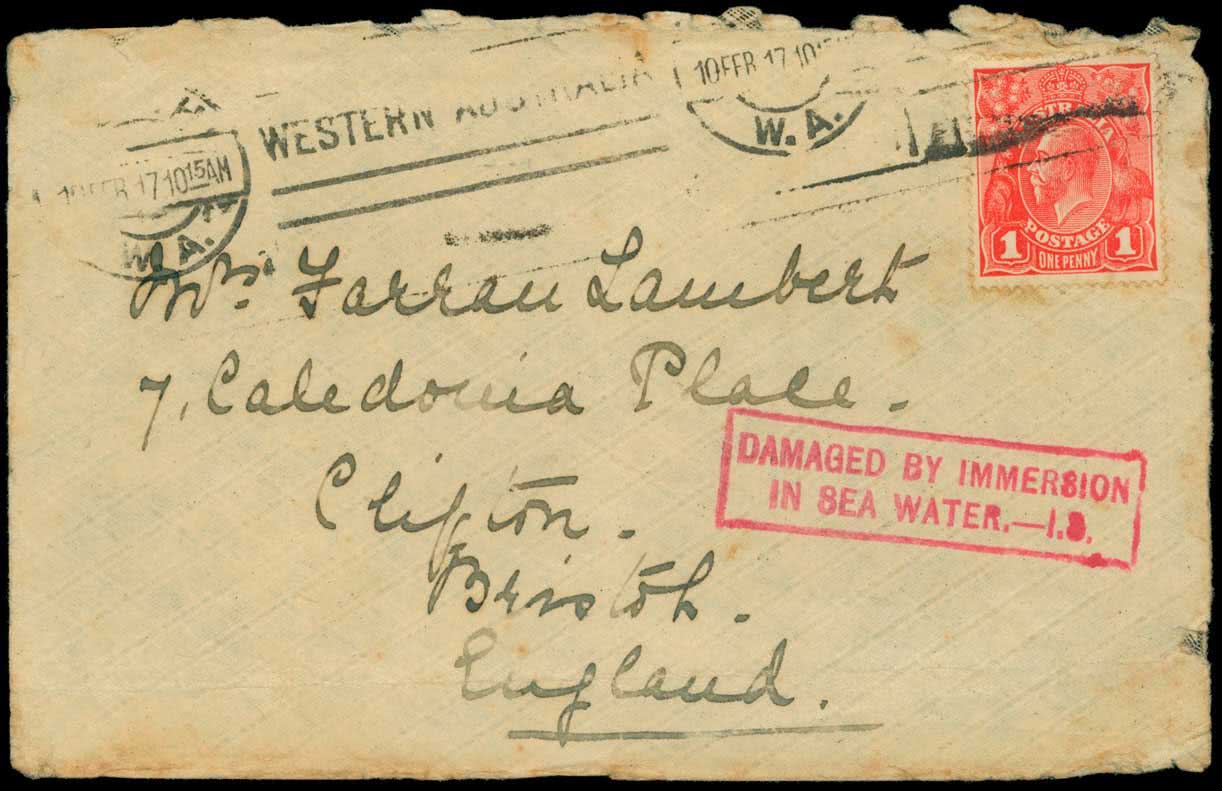 10 FEB 17 10 15 AM
W. A.
WESTERN AUSTRALIA
10 FEB 17 10 15
W. A.
AUSTRALIA
1 POSTAGE 1
ONE PENNY
Mrs. Farran Lambert
7, Caledonia Place.
Clifton.
Bristol.
England.
DAMAGED BY IMMERSION
IN SEA WATER.—I.S.